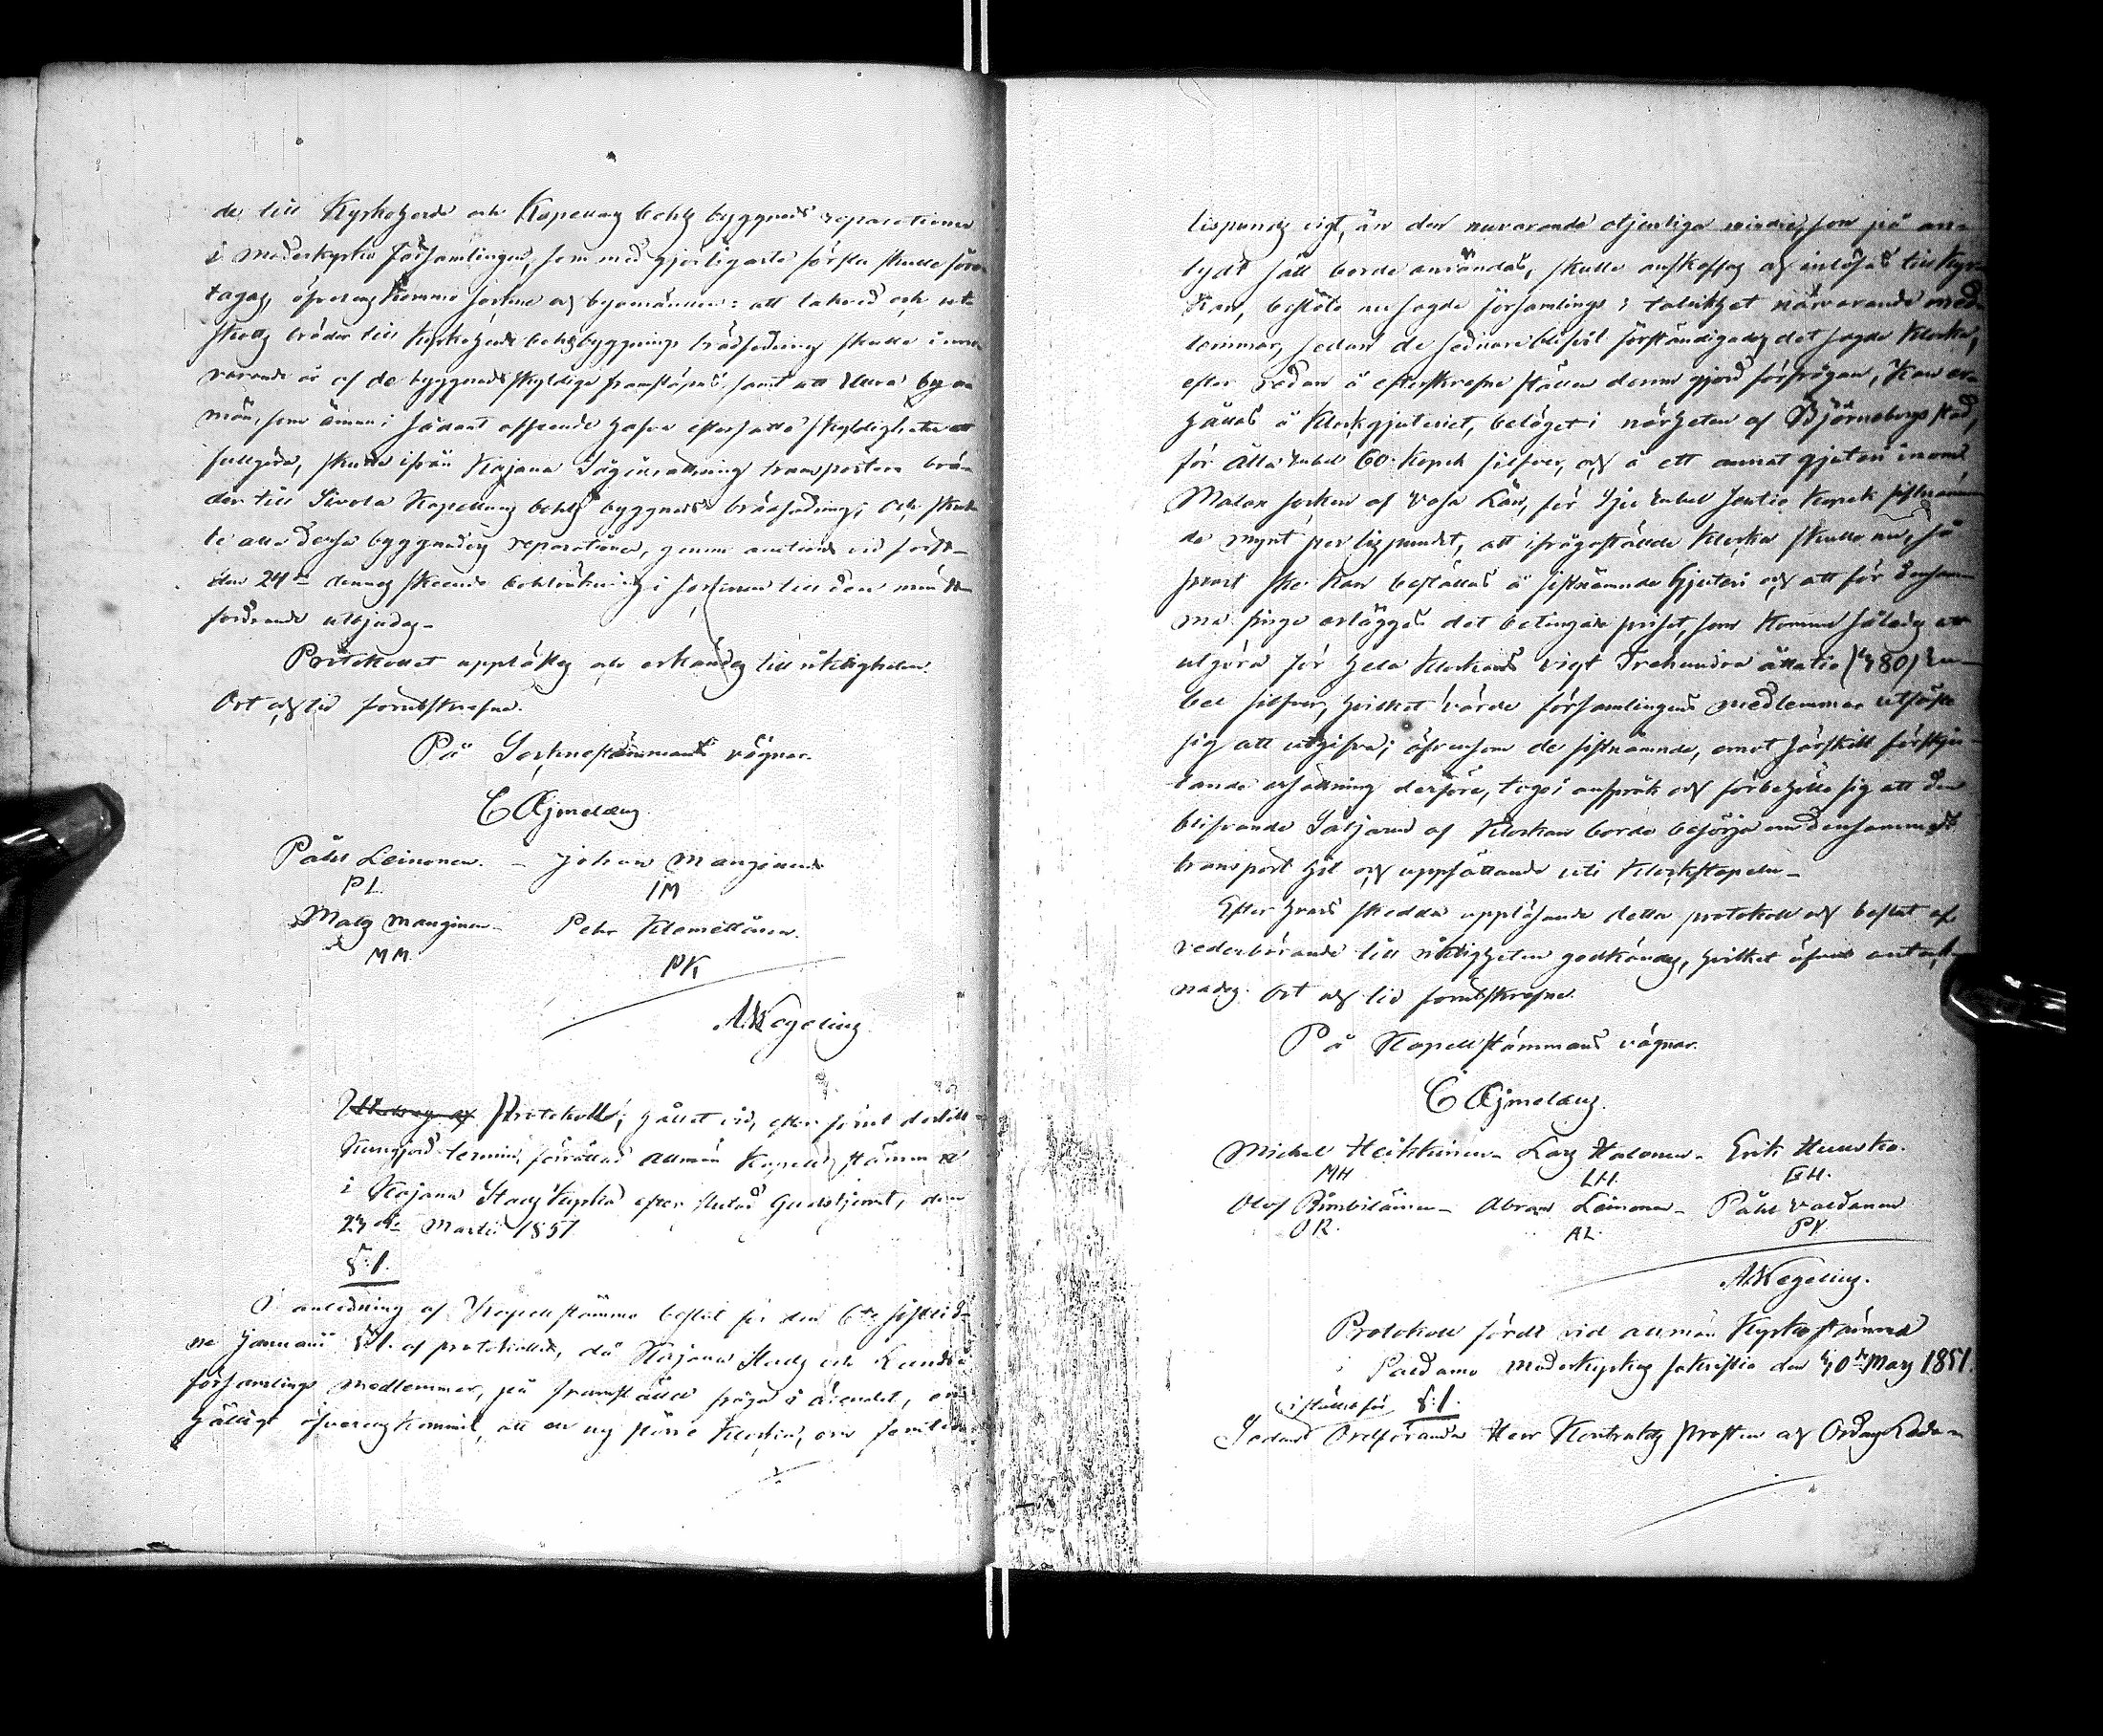 de till Kyrkoherde och Kapellans bohls byggnads reparationer
i moderkyrko församlingen, som med görligaste första skulle före-
tagas, öfverens kommo sockne och byamännen: att takved och ut-
skotts bräder till Kyrkoherde bohls byggnings brädfodring skulle i inne-
varande år af de byggnadsskyldige framsläpas, samt att
män, som ännu i sådant afseende hafva eftersatte skyldigheten att
fullgöra, skulle ifrån Kajana Såginrättning transportera brä-
der till Sivola Kapellans bohls byggnads brädfodring; och skul-
le alla dessa byggnads reparationer, genom auction vid först-
den 24de dennes skeende bohlräkning i socknen till den minst
fordrande utbjudas.
Protokollet upplästes och erkändes till riktigheten.
Ort och tid förutskrefne.
På Socknestämmans vägnar.
C Æjmelæus
Påhl Leinonen. – Johan Manginen
PL IM
Mats Manginen – Petr Klemettinen.
MM PK
A. Wegelius
Utdrag af Protokoll, hållet vid, efter förut dertill
kungjord termin, förrättad allmän Kapell stämma
i Kajana Stads Kyrka efter slutad Gudstjenst, den
23de Martii 1851
§:1.
I anledning af Kapellstämmo beslut för den 6te sistlid-
ne Januarii §1. af protokollet, då Kajana Stads och Lands
församlings medlemmar, på framställd fråga i ärendet, en-
hälligt öfverenskommit, att en ny större klocka, om femtio
lispunds vigt, än den nuvarande otjenliga mindre, som på an-
tydt sätt borde användas, skulle anskaffas och inlösas till Kyr-
kan, beslöto nu sagde församlings i talrikhet närvarande med-
lemmar, sedan de sednare blifvit förständigade det sagde klocka,
efter redan å efterskrefne ställen derom gjord förfrågan, kan er-
hållas å Klockgjuteriet, beläget i närheten af Björneborgs stad,
för Åtta rubel 60 kopek silfver, och å ett annat gjuteri inom
Malax socken af Vasa Län, för Sju rubel Sextio kopek sistnämn-
de mynt per lispundet, att ifrågaställde klocka skulle nu, så
snart ske kan beställas å sistnämnde Gjuteri och att för densam-
ma finge erlägges det betingade priset, som komme således att
utgöra för hela klockans vigt Trehundra åttatio (380) ru-
bel silfver, hvilket värde församlingens medlemmar utfäste
sig att utgifva; äfvensom de sistnämnde, emot särskilt förskju-
tande ersättning derföre, togo i anspråk och förbehöllo sig att den
blifvande Säljaren af klockan borde besörja om densammas
transport hit och uppsättande uti klockstapeln –
Efter hvars skedda uppläsande detta protokoll och beslut af
vederbörande till riktigheten godkändes, hvilket äfven anteck-
nades. Ort och tid förutskrefne.
På Kapellstämmans vägnar.
C Æjmelæus.
Michel Heikkinen – Lars Halonen – Erik Hu
MH LH. EH.
Olof Rimbiläinen – Abram Leinonen – Påhl
OR. AL. PV
A. Wegelius.
Protokoll fördt vid allmän Kyrkostämma
i Paldamo moderkyrkas sakristia den 30de Mars 1851.
i stället för §:1.
Sedan Ordföranden Herr Kontrakts Prosten och Ordens Leda-